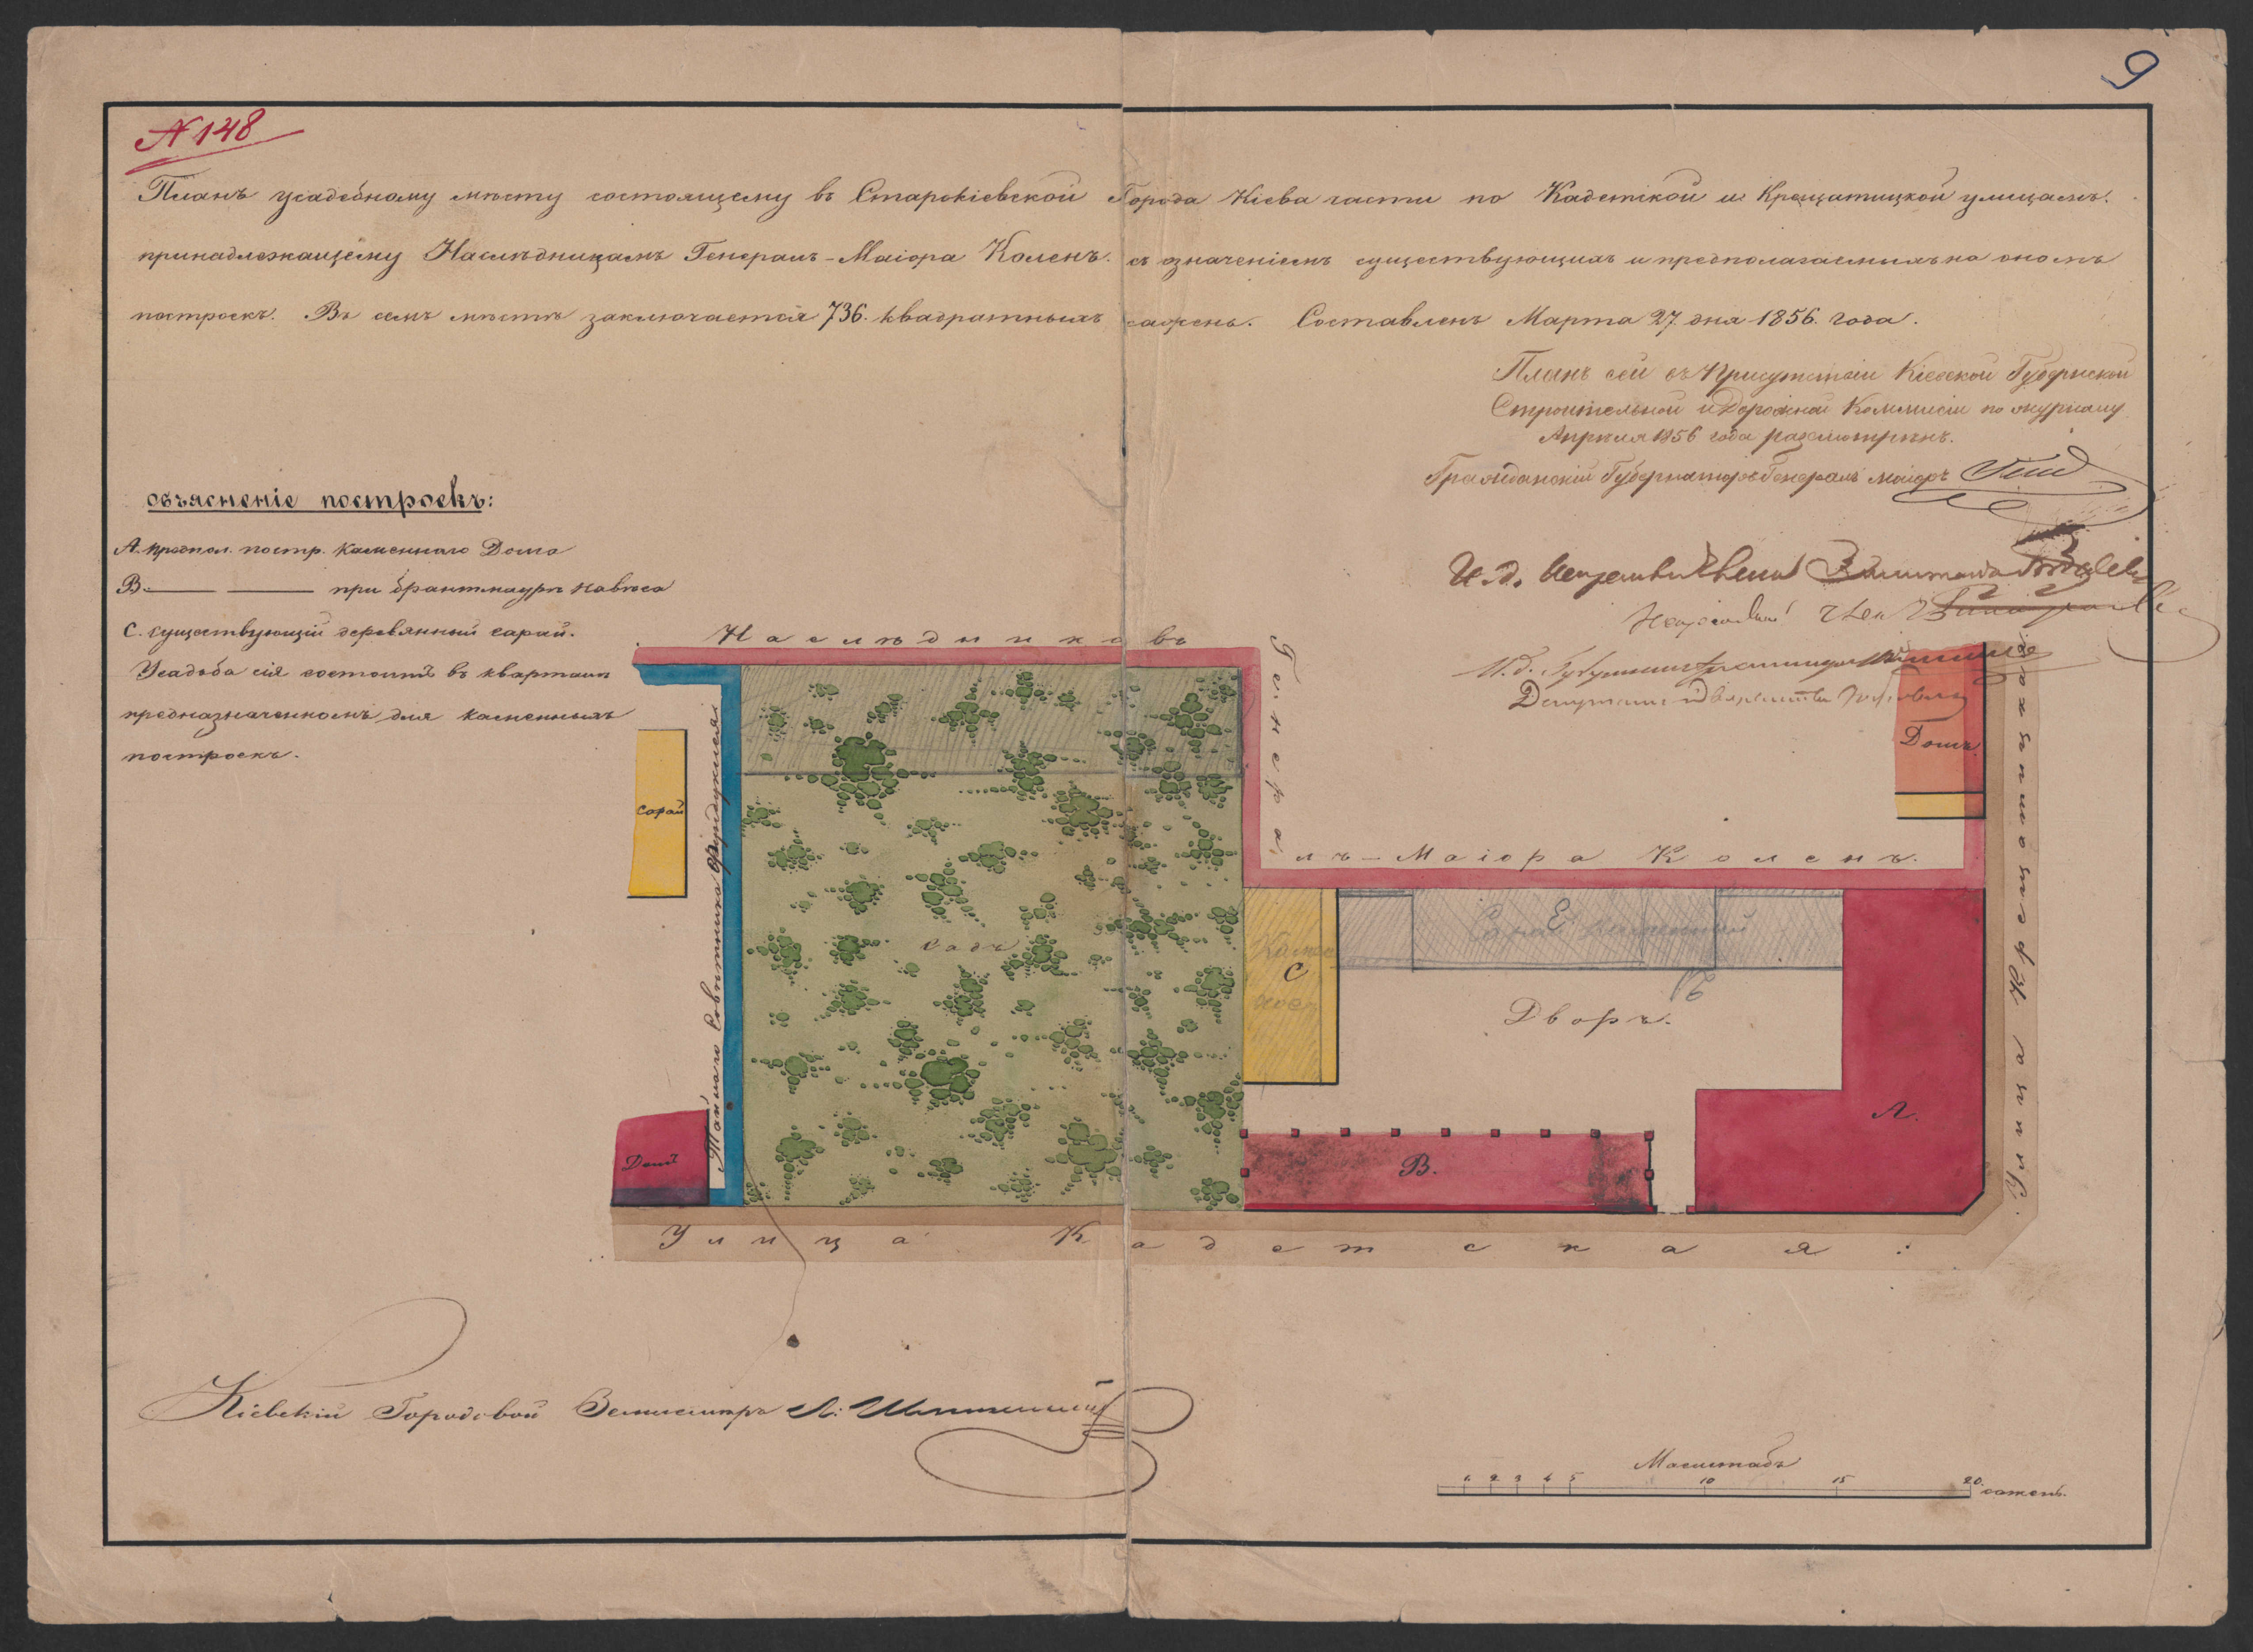 9
N 148
Планъ усадебному мѣсту состоящему въ Старокіевской Города Кіева части по Кадетской и Крещатицкой улицамъ.
принадлежащему Наслѣдницамъ Генералъ-Маіора Коленъ. съ означеніемъ существующихъ и предполагаемыхъ на ономъ
построекъ. Въ семъ мѣстѣ заключается 736. квадратныхъ сажень. Составленъ Марта 27. дня 1856. года.
Планъ сей въ Присутствіи Кіевской Губернской
Строительной и Дорожной Коммисіи по журналу
Апрѣля 1856 года разсмотрѣнъ.
Гражданскій Губернаторъ Генералъ Маіоръ
И. д.
И. д.
Объясненіе построекъ:
А. предпол. постр. Каменнаго Дома
В. — — при брантмаурѣ навѣса
С. существующій деревянный сарай.
Усадьба сія состоитъ въ кварталѣ
предназначенномъ для каменныхъ
построекъ.
Наслѣдниковъ
Генералъ-Маіора Коленъ.
Тайнаго Совѣтника Фундуклея
Сарай
Домъ
Садъ
С
Е
Сарай каменный
Б
Дворъ.
В.
А.
Домъ
Улица Крещатицкая
Улица Кадетская:
Кіевскій Городовой Землемѣръ
Масштабъ
1. 2 3 4 5 10 15 20. сажень.